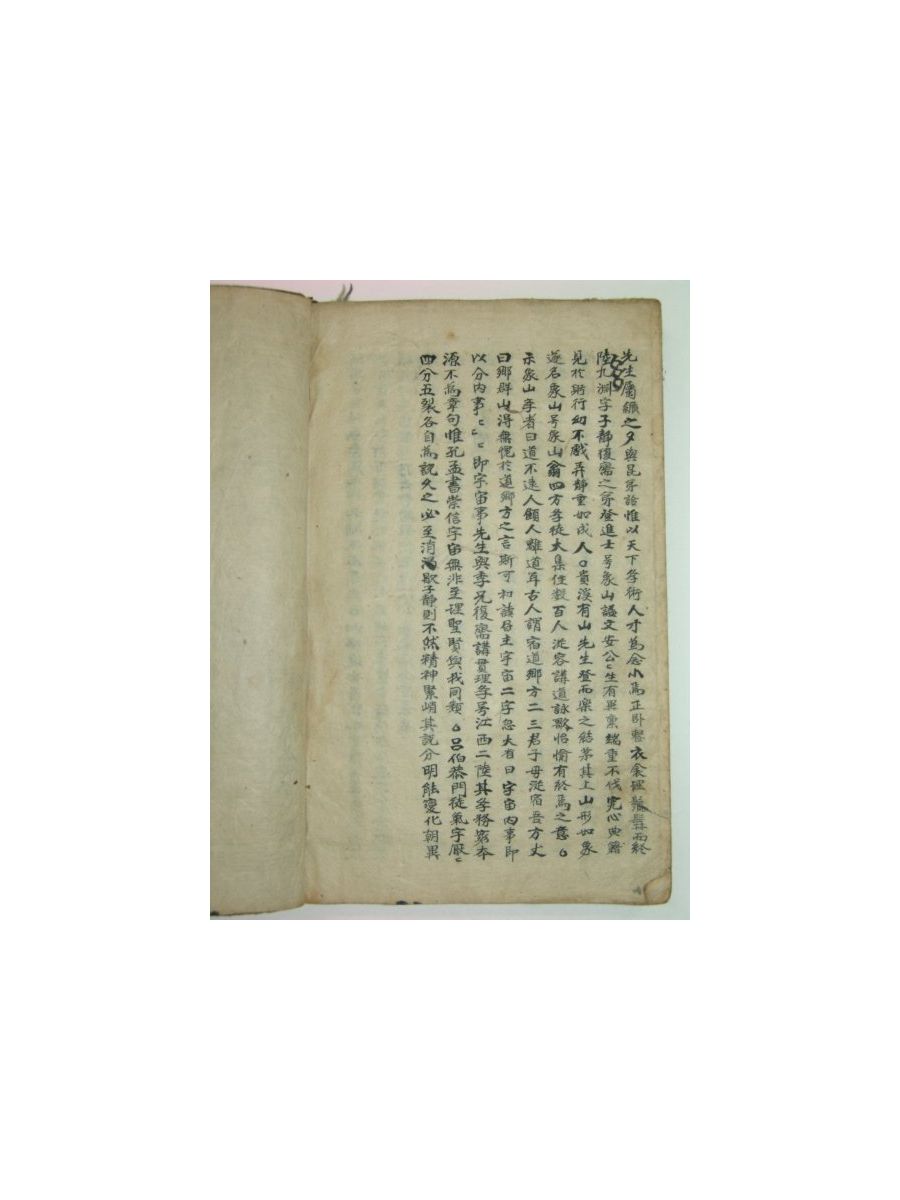 先生屬纊之夕與昆弟語惟以天下孝術人才為念小焉正卧整衣衾理鬚髯而終
陸九淵字子靜復齋之弟登進士号象山諡文安公〻生有異稟端重不伐究心典籍
見於躬行幼不戲弄靜重如成人○貴溪有山先生登而樂之結茅其上山形如象
遂名象山号象山翁四方孝徒大集住數百人從容講道詠歌怡愉有終焉之意○
示象山孝者曰道不遠人顧人離道耳古人謂宿道鄉方二三君子毋從宿吾方丈
曰鄉群山得無愧於道鄉方之言斯可知該居主宇宙二字忽大省曰宇宙內事即
以分內事〻〻即宇宙事先生與季兄復齋講貫理孝号江西二陸其孝務窮本
源不為章句惟孔孟書崇信宇宙無非至理聖賢與我同類○呂伯恭門徒氣宇厭〻
四分五裂各自為說久之必至消渴歇子靜則不然精神緊峭其說分明能變化朝異